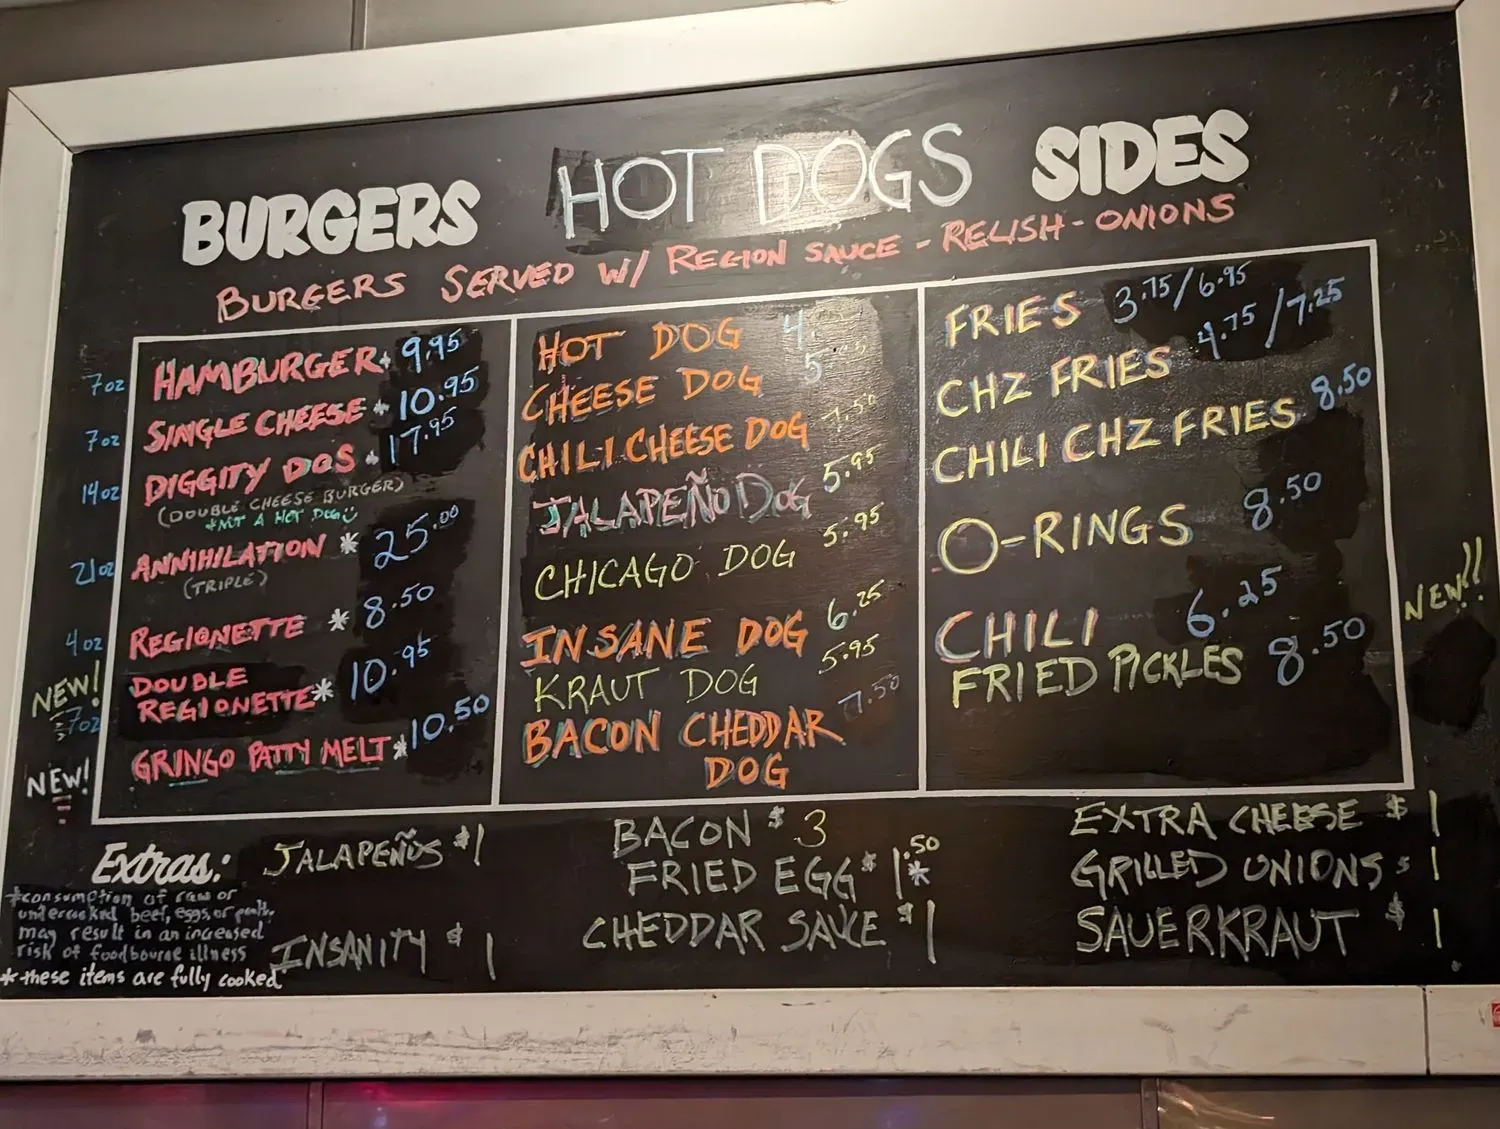 BURGERS HOT DOGS SIDES
BURGERS SERVED W/ REGION SAUCE - RELISH - ONIONS
7oz HAMBURGER* 9.95
7oz SINGLE CHEESE * 10.95
14oz DIGGITY DOS * 17.95
(DOUBLE CHEESE BURGER)
*NOT A HOT DOG
21oz ANNIHILATION * 25.00
(TRIPLE)
4oz REGIONETTE * 8.50
NEW! DOUBLE
7oz REGIONETTE* 10.95
NEW! GRINGO PATTY MELT* 10.50
HOT DOG 4.
CHEESE DOG 5
CHILI CHEESE DOG 7.50
JALAPEÑO DOG 5.95
CHICAGO DOG 5.95
INSANE DOG 6.25
KRAUT DOG 5.95
BACON CHEDDAR 7.50
DOG
FRIES 3.75/6.95
CHZ FRIES 4.75/7.25
CHILI CHZ FRIES 8.50
O-RINGS 8.50
CHILI 6.25
FRIED PICKLES 8.50 NEW!!
Extras:
JALAPEÑOS $1
INSANITY $1
BACON $3
FRIED EGG $1.50*
CHEDDAR SAUCE $1
EXTRA CHEESE $1
GRILLED ONIONS $1
SAUERKRAUT $1
*consumption of raw or
undercooked beef, eggs, or
may result in an increased
risk of foodbourne illness
*these items are fully cooked